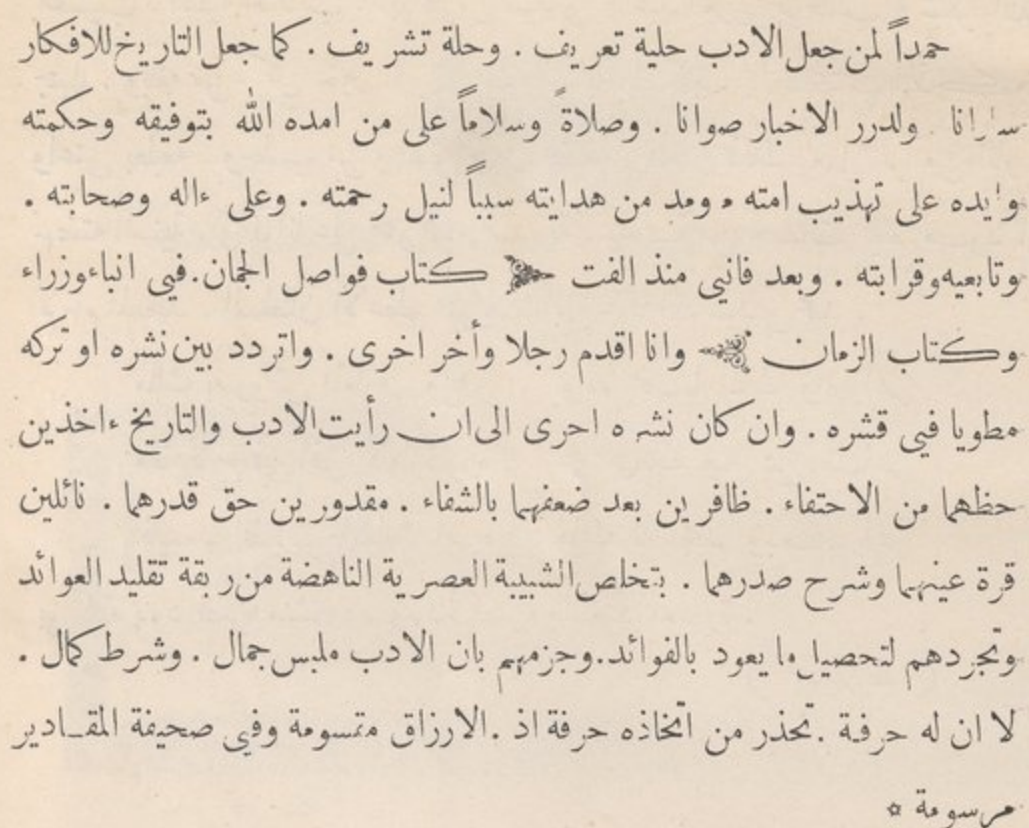 حمداً لمن جعل الادب حلية تعريف . وحلة تشريف . كما جعل التاريخ للافكار
ولدرر الاخبار صوانا . وصلاةً وسلاماً على من امده الله بتوفيقه وحكمته
وايده على تهذيب امته ه ومد من هدايته سبباً لنيل رحمته . وعلى ءاله وصحابته .
وتابعيه وقرابته . وبعد فاني منذ الفت كتاب فواصل الجمان . في انباء وزراء
وكتاب الزمان وانا اقدم رجلا وأخر اخرى . واتردد بين نشره او تركه
مطويا في قشره . وان كان نشره احرى الى ان رأيت الادب والتاريخ ءاخذين
حظهما من الاحتفاء . ظافرين بعد ضعفهما بالشفاء . مقدورين حق قدرهما . نائلين
قرة عينهما وشرح صدرهما . بتخلص الشبيبة العصرية الناهضة من ربقة تقليد العوائد
وتجردهم لتحصيل ما يعود بالفوائد . وجزمهم بان الادب ملبس جمال . وشرط كمال .
لا ان له حرفة . تحذر من اتخاذه حرفة اذ . الارزاق مقسومة وفي صحيفة المقادير
مرسومة ¤